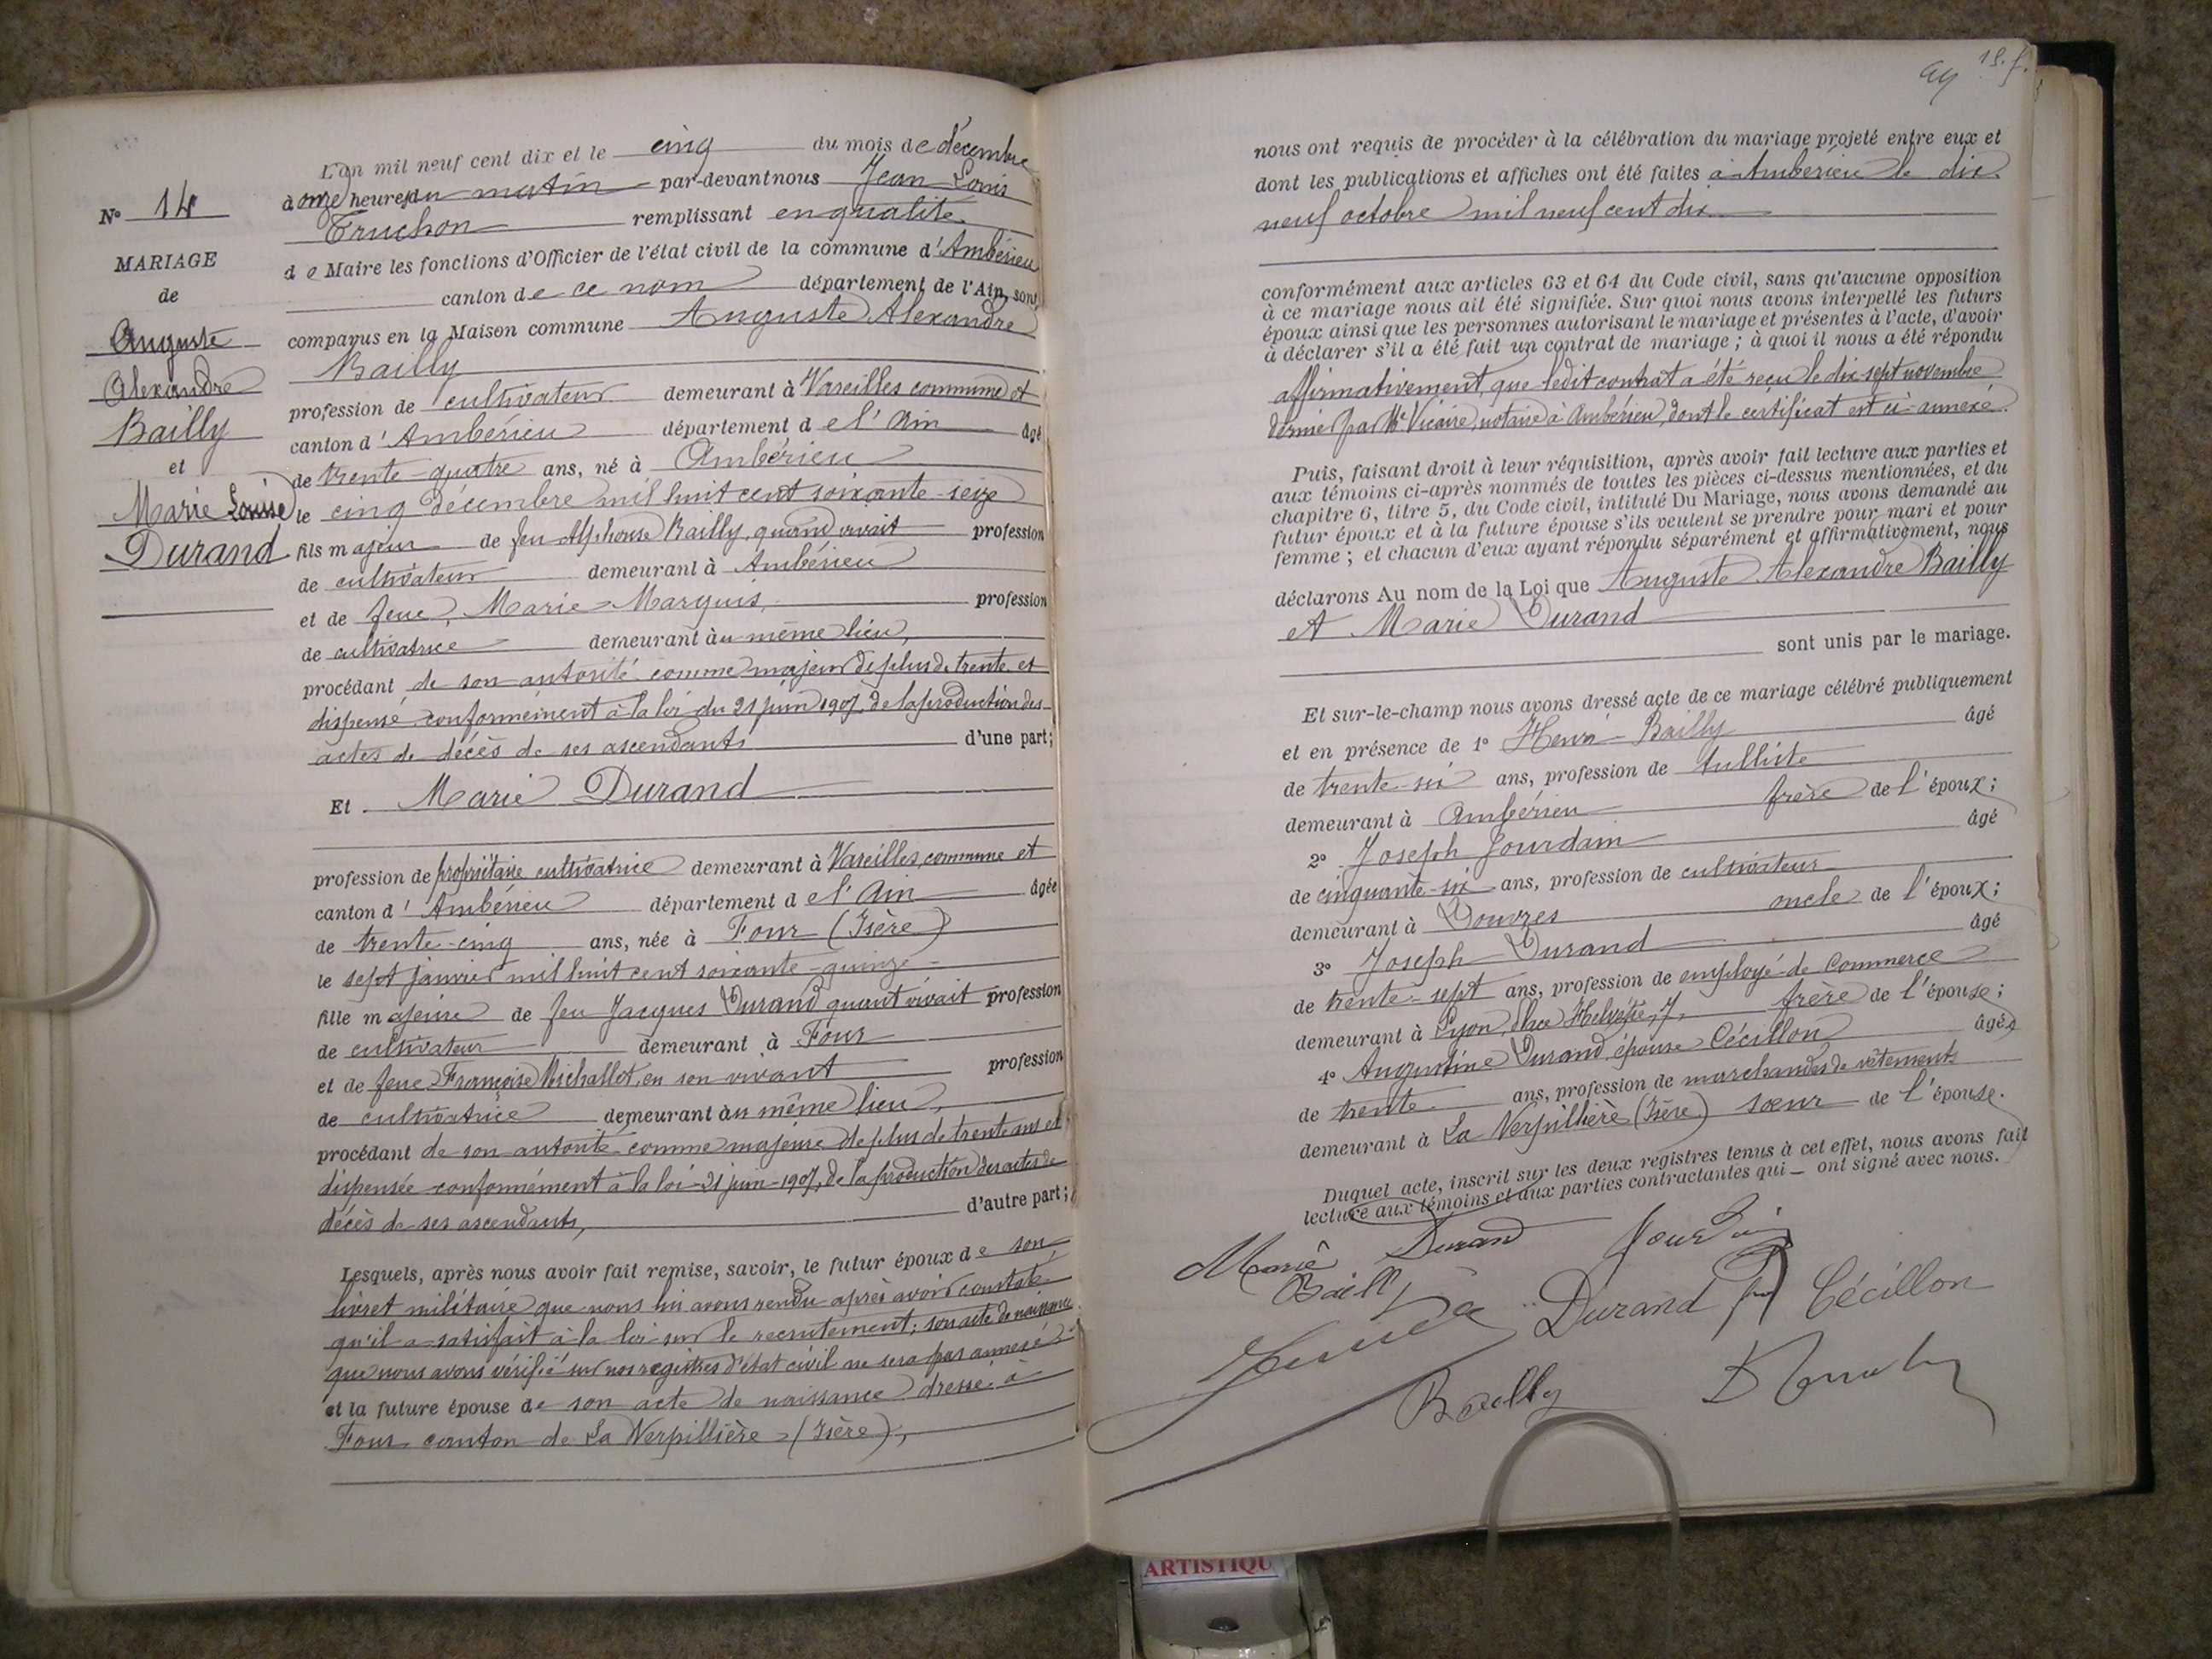 N° 14
MARIAGE
de
Auguste
Alexandre
Bailly
et
Marie Louise
Durand
L'an mil neuf cent dix et le cinq du mois de décembre
à onze heures du matin par-devant nous Jean Louis
Truchon remplissant en qualité
de Maire les fonctions d'Officier de l'état civil de la commune d'Ambérieu
canton de ce nom département de l'Ain, sont
comparus en la Maison commune Auguste Alexandre
Bailly
profession de cultivateur demeurant à Vareilles commune et
canton d'Ambérieu département de l'Ain âgé
de trente-quatre ans, né à Ambérieu
le cinq décembre mil huit cent soixante-seize
fils majeur de feu Alphonse Bailly, quand vivait profession
de cultivateur demeurant à Ambérieu
et de feue, Marie Marguis, profession
de cultivatrice demeurant au même lieu,
procédant de son autorité comme majeur de plus de trente et
dispensé conformément à la loi du 21 juin 1907, de la production des
actes de décès de ses ascendants d'une part;
Et Marie Durand
profession de propriétaire cultivatrice demeurant à Vareilles, commune et
canton d'Ambérieu département de l'Ain âgée
de trente-cinq ans, née à Four (Isère)
le sept janvier mil huit cent soixante-quinze
fille majeure de feu Jacques Durand quant vivait profession
de cultivateur demeurant à Four
et de feue Françoise Michallet, en son vivant profession
de cultivatrice demeurant au même lieu,
procédant de son autorité comme majeure de plus de trente ans et
dispensée conformément à la loi 21 juin 1907, de la production des actes de
décès de ses ascendants, d'autre part;
Lesquels, après nous avoir fait remise, savoir, le futur époux de son
livret militaire que nous lui avons rendu après avoir constaté
qu'il a satisfait à la loi sur le recrutement; son acte de naissance
que nous avons vérifié sur nos registres d'état civil ne sera pas annexé
et la future épouse de son acte de naissance dressé à
Four canton de La Verpillière (Isère),
nous ont requis de procéder à la célébration du mariage projeté entre eux et
dont les publications et affiches ont été faites à Ambérieu le dix
neuf octobre mil neuf cent dix
conformément aux articles 63 et 64 du Code civil, sans qu'aucune opposition
à ce mariage nous ait été signifiée. Sur quoi nous avons interpellé les futurs
époux ainsi que les personnes autorisant le mariage et présentes à l'acte, d'avoir
à déclarer s'il a été fait un contrat de mariage; à quoi il nous a été répondu
affirmativement, que ledit contrat a été reçu le dix-sept novembre
dernier par Me Vicaire, notaire à Ambérieu, dont le certificat est ci-annexé.
Puis, faisant droit à leur réquisition, après avoir fait lecture aux parties et
aux témoins ci-après nommés de toutes les pièces ci-dessus mentionnées, et du
chapitre 6, titre 5, du Code civil, intitulé Du Mariage, nous avons demandé au
futur époux et à la future épouse s'ils veulent se prendre pour mari et pour
femme; et chacun d'eux ayant répondu séparément et affirmativement, nous
déclarons Au nom de la Loi que Auguste Alexandre Bailly
et Marie Durand
sont unis par le mariage.
Et sur-le-champ nous avons dressé acte de ce mariage célébré publiquement
et en présence de 1° Henri Bailly âgé
de trente-six ans, profession de tulliste
demeurant à Ambérieu frère de l'époux;
2° Joseph Jourdain âgé
de cinquante-six ans, profession de cultivateur
demeurant à Douvres oncle de l'époux;
3° Joseph Durand âgé
de trente-sept ans, profession de employé de Commerce
demeurant à Lyon, place Helvétie, 7, frère de l'épouse;
4° Augustine Durand, épouse Cécillon âgée
de trente ans, profession de marchande de vêtements
demeurant à La Verpillière (Isère) sœur de l'épouse.
Duquel acte, inscrit sur les deux registres tenus à cet effet, nous avons fait
lecture aux témoins et aux parties contractantes qui ont signé avec nous.
Marie Durand Jourdain
Bailly Durand Cécillon
Bailly
ARTISTIQU